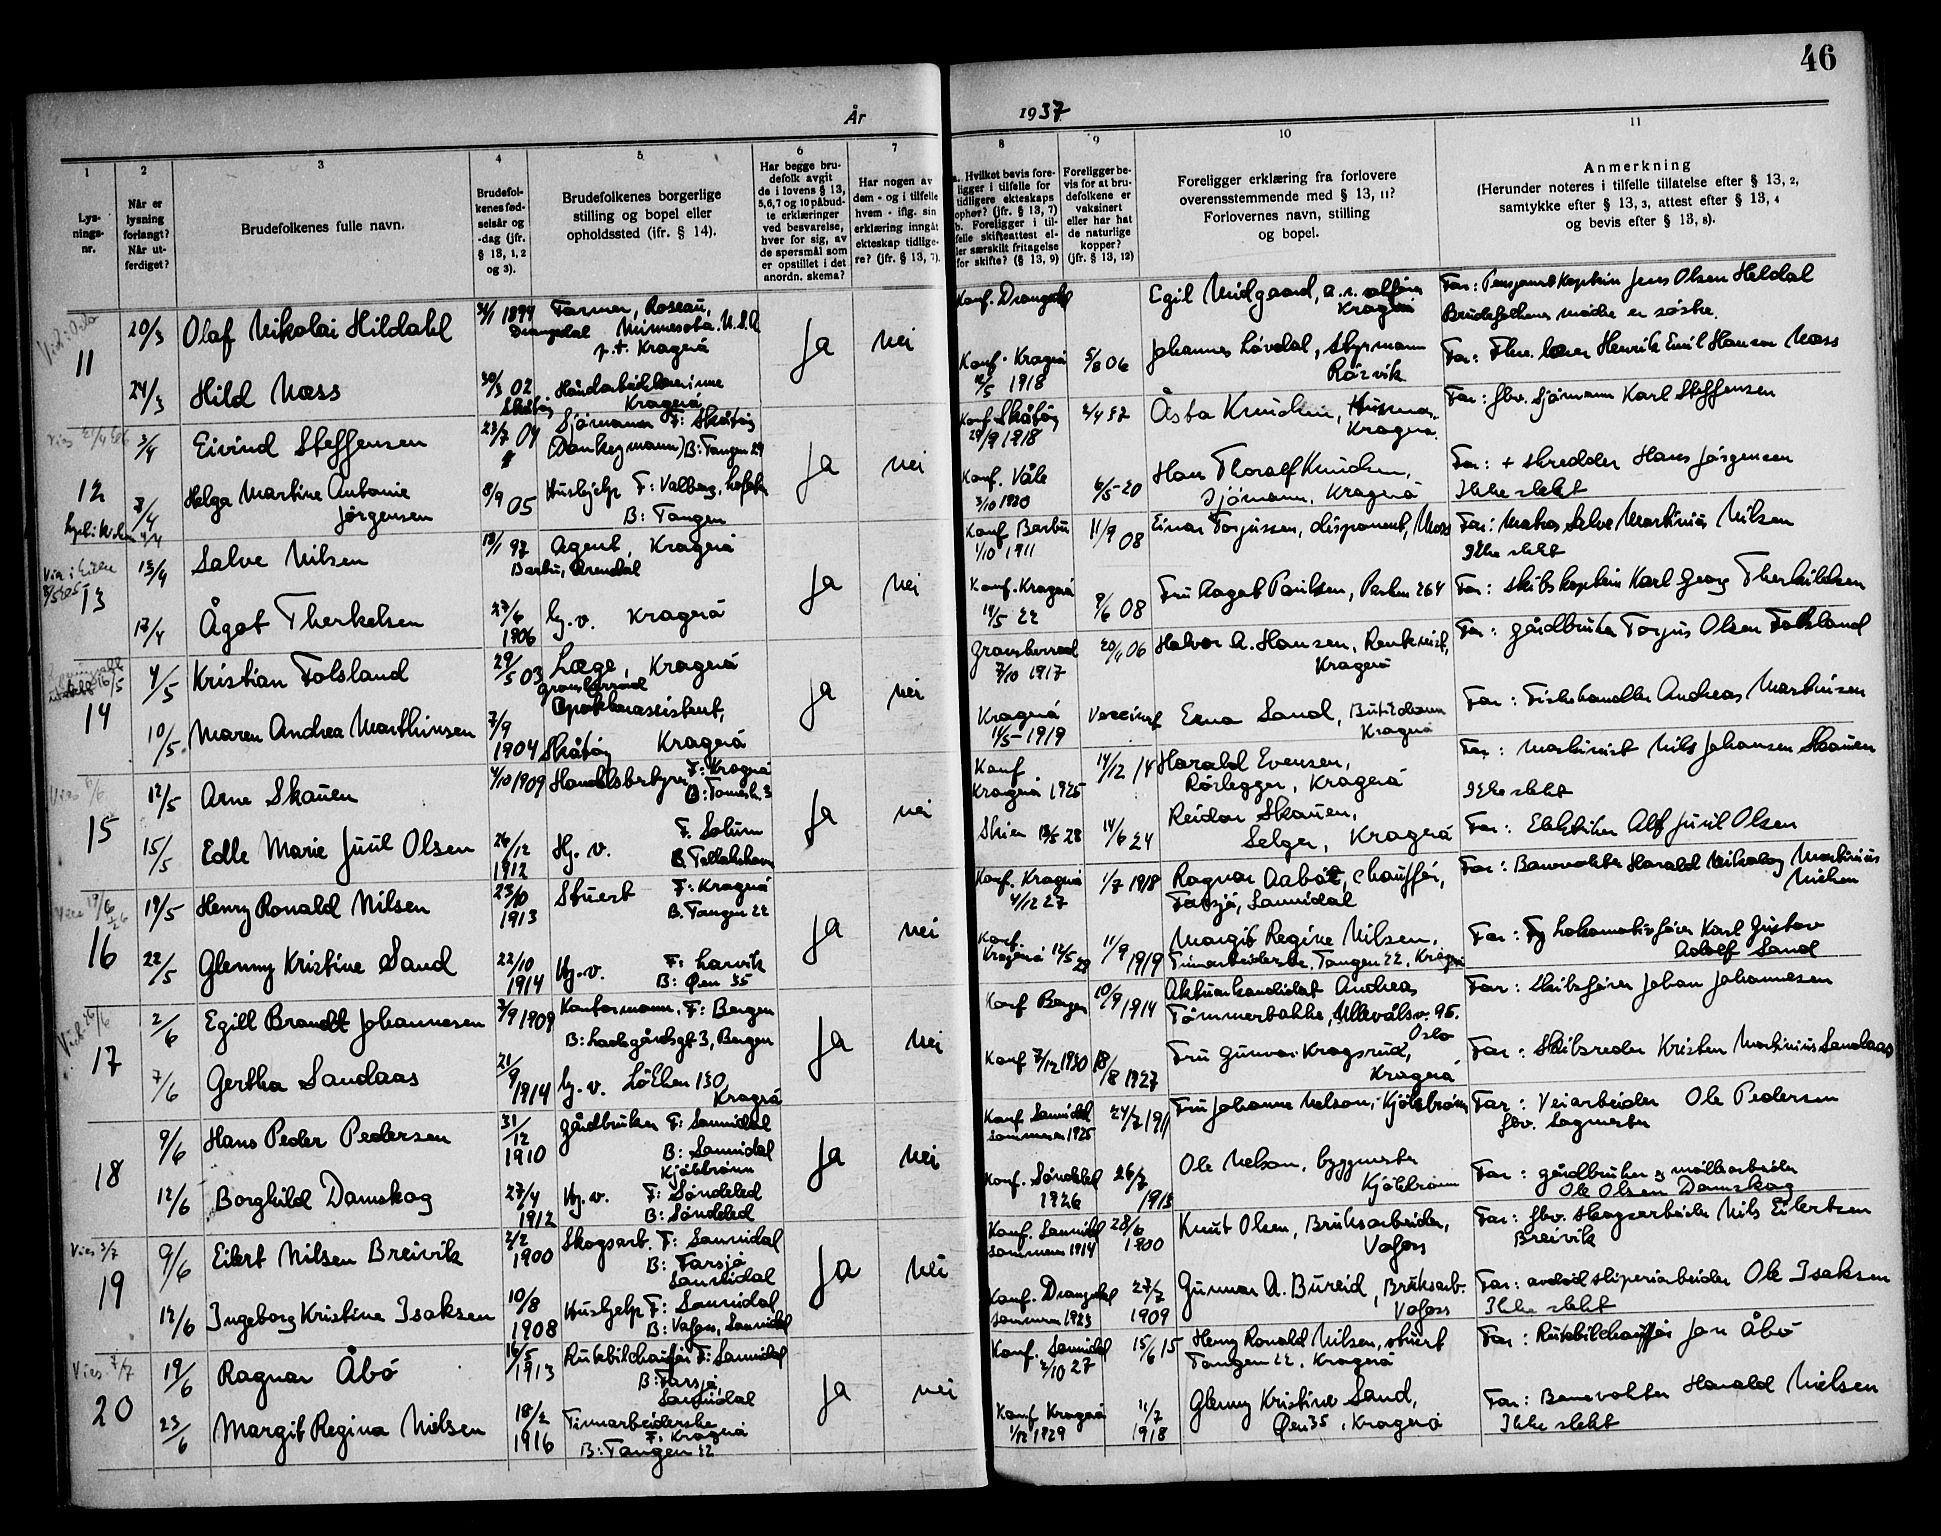 46
År 1937
1
Lys-
nings-
nr.
2
Når er
lysning
forlangt?
Når ut-
ferdiget?
3
Brudefolkenes fulle navn.
4
Brudefol-
kenes fød-
selsår og
-dag (jfr.
§ 13, 1, 2
og 3).
5
Brudefolkenes borgerlige
stilling og bopel eller
opholdssted (ifr. § 14).
6
Har begge bru-
defolk avgit
de i lovens § 13,
5,6,7 og 10 påbud-
te erklæringer
ved besvarelse,
hver for sig, av
de spørsmål som
er opstillet i det
anordn. skema?
7
Har nogen av
dem - og i tilfelle
hvem - iflg. sin
erklæring inngått
ekteskap tidlige-
re? (jfr. § 13, 7).
8
a. Hvilket bevis fore-
ligger i tilfelle for
tidligere ekteskaps
ophør? (jfr. § 13, 7)
b. Foreligger i til-
felle skifteattest el-
ler særskilt fritagelse
for skifte? (§ 13, 9)
9
Foreligger be-
vis for at bru-
defolkene er
vaksinert
eller har hat
de naturlige
kopper?
(jfr. § 13, 12)
10
Foreligger erklæring fra forlovere
overensstemmende med § 13, 11?
Forlovernes navn, stilling
og bopel.
11
Anmerkning
(Herunder noteres i tilfelle tillatelse efter § 13, 2,
samtykke efter § 13, 3, attest efter § 13, 4
og bevis efter § 13, 8).
11
20/3 Olaf Nikolai Hildahl 1899 Farmer, Roseau,
Drangedal Minnesota. U.S.A
p.t. Kragerø
Ja nei
Konf. Drangedal
Egil Midgaard,
Kragerø
Far: Jens Olsen Heldal
Brudefolkenes mødre er søstre.
24/3 Hild Næss 30/3 02
Kragerø
Skåtøy
Konf. Kragerø
1918
5/8 06
Johannes Løvdal, Styrmann
Rørvik
Far: Henrik Emil Hansen Næss
12
3/4 Eivind Steffensen 23/7 04 Sjømann F: Skåtøy
(Donkeymann) B: Tangen 29
Ja nei
Konf. Skåtøy
29/9 1918
Åsta Knudsen,
Kragerø.
Far: fhv. Sjømann Karl Steffensen
7/4 Helga Martine Antonie
Jørgensen
8/9 05 Hushjelp F: Valberg, Lofoten
B: Tangen
Konf. Våle
3/10 1920
6/5-20
Hans Thoralf Knudsen,
Sjømann, Kragerø
Far: + skredder Hans Jørgensen
Ikke slekt
13
13/4 Salve Nilsen 18/1 97 Agent, Kragerø
Barbu, Arendal
Ja nei
Konf Barbu
1/10 1911
11/9 08
Einar Torjussen, disponent, Moss
Far: Matros Salve Martinius Nilsen
Ikke slekt
17/4 Ågot Therkelsen 27/6
1906
Hj. v. Kragerø
Konf. Kragerø
14/5 22
8/6 08
Fru Aagot Paulsen,
Far: skibskaptein Karl Georg Therkildsen
14
4/5 Kristian Folsland 29/5 03 Læge, Kragerø
Gransherred
Ja nei
Gransherred
7/10 1917
20/4 06
Halvor A. Hansen, Rentenist,
Kragerø
Far: gårdbruker Torjus Olsen Folsland
10/5. Maren Andrea Marthinsen 7/9
1904
Apotekerassistent,
Skåtøy Kragerø
Kragerø
11/5-1919
Erna Sand,
Kragerø
Far: Fiskehandler Andreas Martinsen
15
12/5 Arne Skauen 4/10 1909 Handelsbestyrer F: Kragerø
Ja nei
Konf
Kragerø 1925
14/12 14
Harald Evensen,
Rørlegger, Kragerø
Far: Maskinist Nils Johansen Skauen
Ikke slekt
15/5 Edle Marie Juul Olsen 26/12
1912
Hj. v. F. Solum
Skien 13/5 28
14/6 24
Reidar Skauen,
Selger, Kragerø
Far: Elektriker Alf Juul Olsen
16
19/5 Henry Ronald Nilsen 23/10
1913
Stuert F: Kragerø
B. Tangen 22
Ja nei
Konf. Kragerø
4/12 27
1/7 1918
Ragnar Aabøe, chauffør,
Farsjø, Sannidal
Far: Banevokter Harald Nikolay Martinius
Nielsen
22/5 Glenny Kristine Sand 22/10
1914
Hj.v. F: Larvik
B: Øen 35
Konf.
Kragerø 12/5 29
11/9 1919
Margit Regine Nilsen,
Finnarbeiderske, Tangen 22, Kragerø
Far: Lokomotivfører Karl Gustav
Adolf Sand
17
2/6 Egill Brandt Johannesen 7/9 1909 Kontormann. F: Bergen
B: Ladegårdsgt 3, Bergen
Ja nei
Konf Bergen
10/9 1914
Aktuarkandidat Andreas
Tømmerbakke, Ullevålsv. 95.
Oslo
Far: Skibsfører Johan Johannesen
7/6 Gertha Sandaas 21/9
1914
Hj. v. Løkken 130
Kragerø
Konf 7/12 1930
18/8 1927
Fru Gunvor Kragsrud,
Kragerø
Far: Skibsreder Kristen Martinius Sandaas
18
9/6 Hans Peder Pedersen 31/12
1910
gårdbruker F: Sannidal
B: Sannidal
Kjølebrønn
Ja nei
Konf Sannidal
sommeren 1925
24/7 1911
Fru Johanne Nelson, Kjølebrønn
Far: Veiarbeider Ole Pedersen
fhv. Sagmester
12/6 Borghild Damskog 27/4
1912
Hj. v. F: Søndeled
B: Søndeled
Konf. Søndeled
1926
26/7
1913
Ole Nelson, byggmester
Kjølebrønn
Far: gårdbruker og mølllearbeider
Ole Olsen Damskog
Vies 3/7
19
9/6 Eilert Nilsen Breivik 2/2
1900
Skogsarb. F: Sannidal
B: Farsjø
Sannidal
Ja nei
Konf. Sannidal
sommeren 1914
28/6
1900
Knut Olsen, Bruksarbeider,
Vafoss
Far: fhv. skogsarbeider Nils Eilertsen
Breivik
12/6 Ingeborg Kristine Isaksen 10/8
1908
Hushjelp F: Sannidal
B: Vafoss, Sannidal
Konf. Drangedal
sommeren 1923
27/7
1909
Gunnar A. Bureid, Bruksarb.
Vafoss
Far: avdød sliperiarbeider Ole Isaksen
Ikke slekt
Vies 7/7
20
19/6 Ragnar Åbø 16/5
1913
Rutebilchauffør F: Sannidal
B: Farsjø,
Sannidal
Ja nei
Konf. Sannidal
2/10 27
15/6 15
Henry Ronald Nilsen, stuert
Tangen 22, Kragerø
Far: Rutebilchauffør Jan Åbø
23/6 Margit Regina Nielsen 18/2
1916
Finnarbeiderske
F: Kragerø
B: Tangen 22
Konf Kragerø
1/12 1929
11/7
1918
Glenny Kristine Sand,
Øen 35, Kragerø
Far: Banevokter Harald Nielsen
Ikke slekt